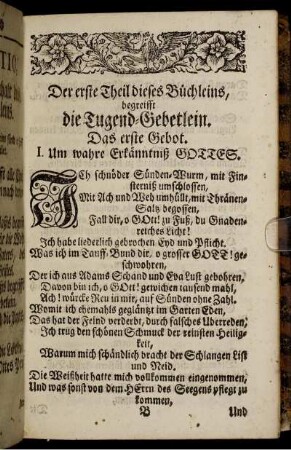 Der erste Theil dieses Büchleins,
begreifft
die Tugend-Gebetlein.
Das erste Gebot.
I. Um wahre Erkänntniß GOTTES.
ICh schnöder Sünden-Wurm, mit Fin-
sterniß umschlossen,
Mit Ach und Weh umhüllt, mit Thränen-
Saltz begossen,
Fall dir, o GOtt! zu Fuß, du Gnaden-
reiches Licht!
Ich habe liederlich gebrochen Eyd und Pflicht.
Was ich im Tauff-Bund dir, o grosser GOTT! ge-
schwohren,
Der ich aus Adams Schand und Eva Lust gebohren,
Davon bin ich, o GOtt! gewichen tausend mahl,
Ach! würcke Reu in mir, auf Sünden ohne Zahl.
Womit ich ehemahls gegläntzt im Garten Eden,
Das hat der Feind verderbt, durch falsches Uberreden;
Ich trug den schönen Schmuck der reinsten Heilig-
keit,
Warum mich schändlich bracht der Schlangen List
und Neid.
Die Weißheit hatte mich vollkommen eingenommen,
Und was sonst von dem HErrn des Seegens pflegt zu
kommen,
B Und